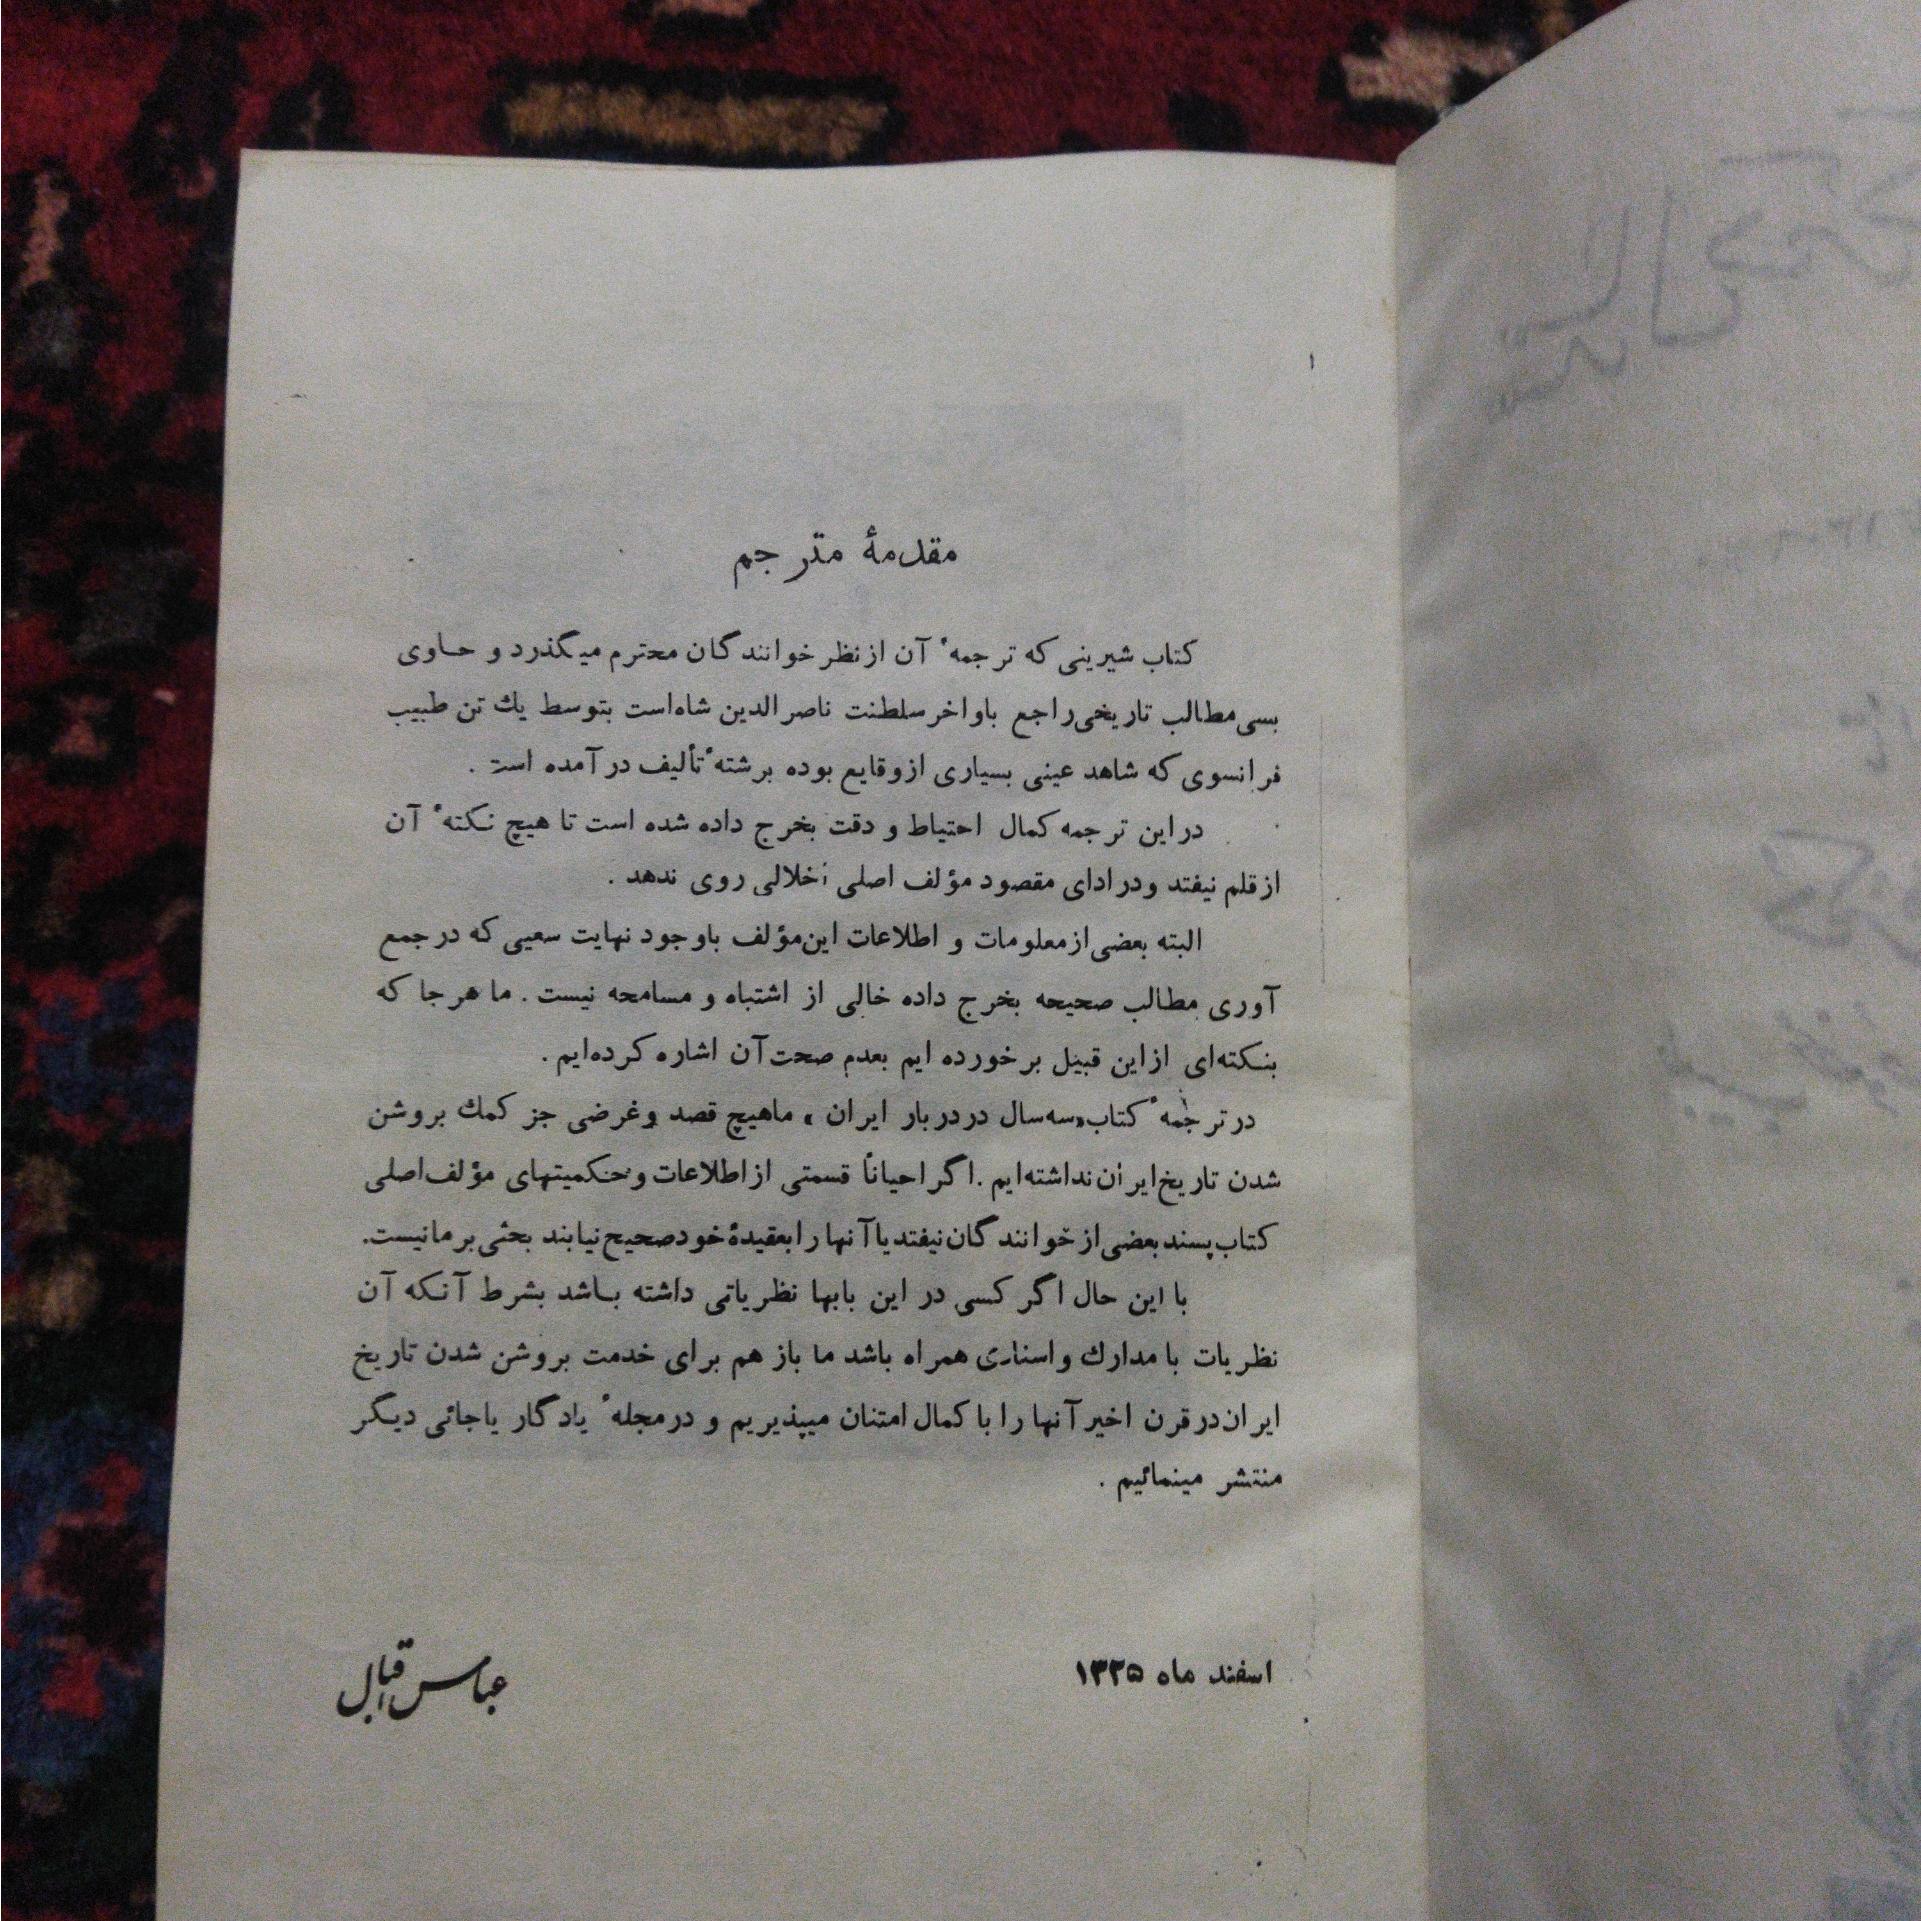 مقدمهٔ مترجم
کتاب شیرینی که ترجمهٔ آن از نظر خوانندگان محترم میگذرد و حاوی
بسی مطالب تاریخی راجع باواخر سلطنت ناصرالدین شاه است بتوسط یك تن طبیب
فرانسوی که شاهد عینی بسیاری از وقایع بوده برشتهٔ تألیف در آمده است .
در این ترجمه کمال احتیاط و دقت بخرج داده شده است تا هیچ نکتهٔ آن
از قلم نیفتد و در ادای مقصود مؤلف اصلی اخلالی روی ندهد .
البته بعضی از معلومات و اطلاعات این مؤلف باوجود نهایت سعیی که در جمع
آوری مطالب صحیحه بخرج داده خالی از اشتباه و مسامحه نیست . ما هر جا که
بنکته‌ای از این قبیل برخورده ایم بعدم صحت آن اشاره کرده‌ایم .
در ترجمهٔ کتاب «سه سال در دربار ایران » ما هیچ قصد و غرضی جز کمك بروشن
شدن تاریخ ایران نداشته‌ایم . اگر احیاناً قسمتی از اطلاعات و حکمیتهای مؤلف اصلی
کتاب پسند بعضی از خوانندگان نیفتد یا آنها را بعقیدهٔ خود صحیح نیابند بحثی بر ما نیست.
با این حال اگر کسی در این بابها نظریاتی داشته باشد بشرط آنکه آن
نظریات با مدارك و اسنادی همراه باشد ما باز هم برای خدمت بروشن شدن تاریخ
ایران در قرن اخیر آنها را با کمال امتنان میپذیریم و در مجلهٔ یادگار یا جائی دیگر
منتشر مینمائیم .
اسفند ماه ۱۳۲۵
عباس اقبال